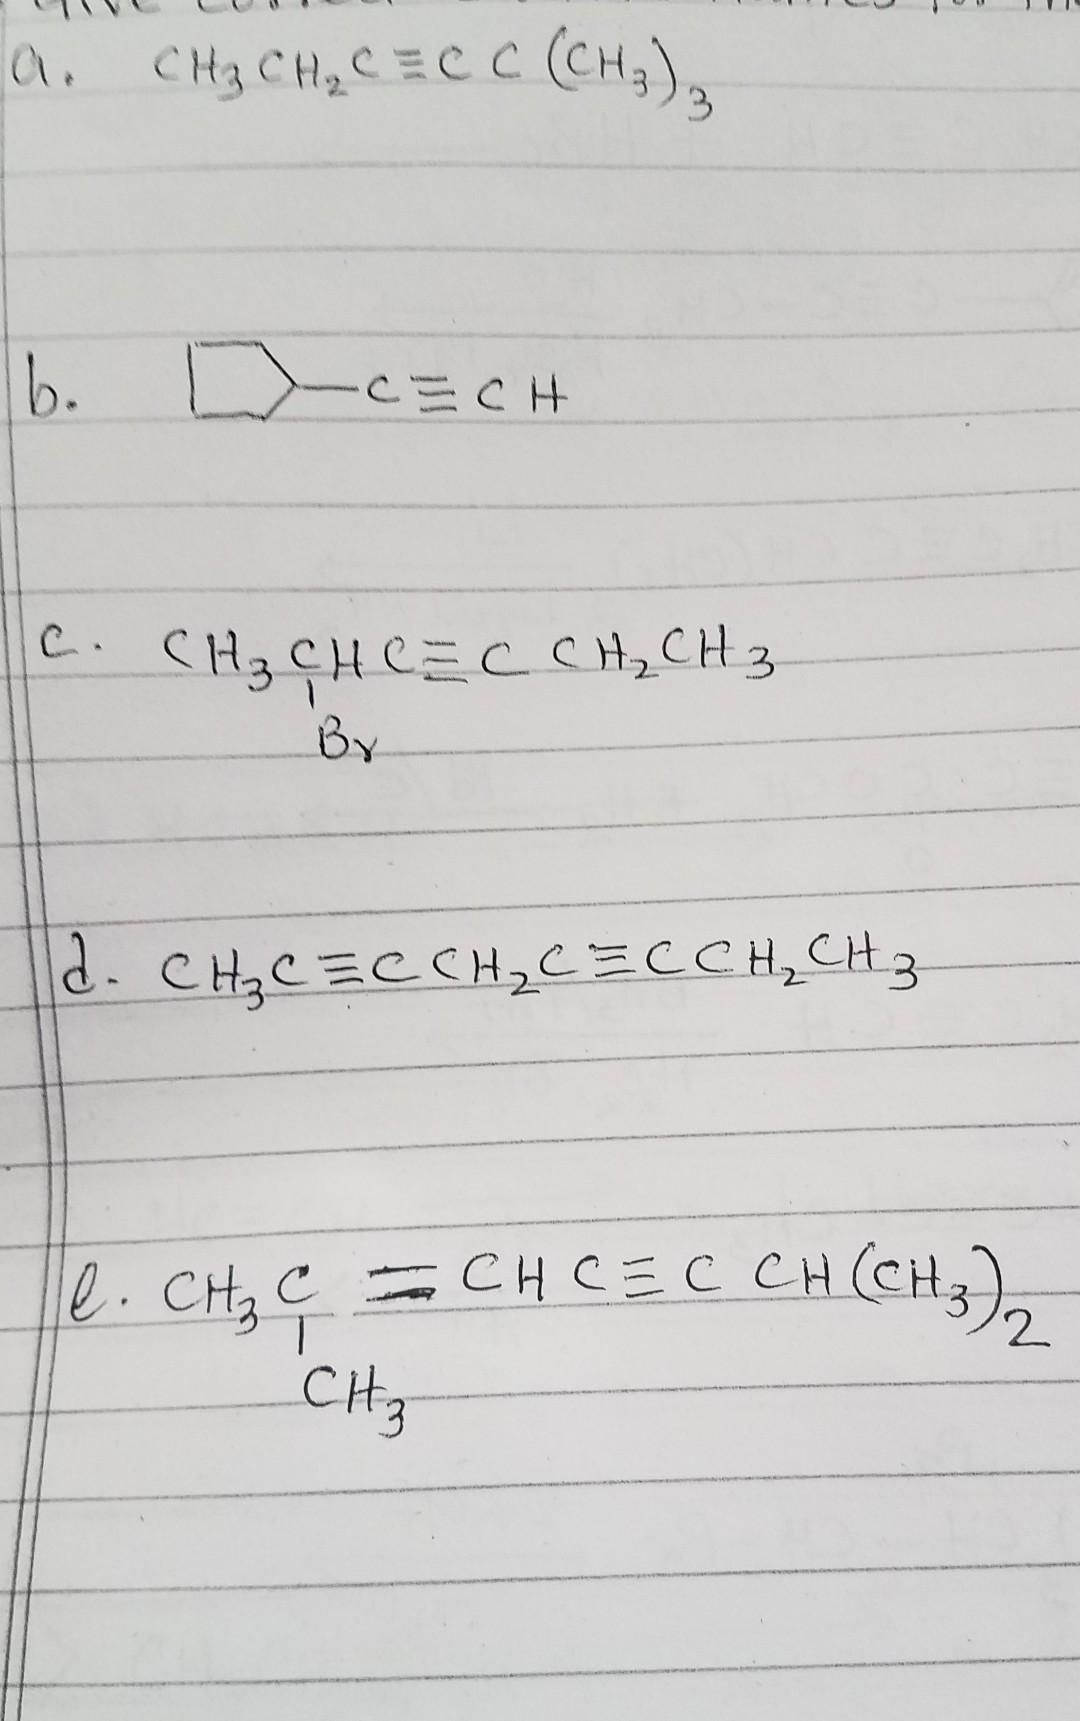 a. CH₃CH₂C≡CC(CH₃)₃
b. —C≡CH
c. CH₃CHC≡CCH₂CH₃
Br
d. CH₃C≡CCH₂C≡CCH₂CH₃
e. CH₃C=CHC≡CCH(CH₃)₂
CH₃